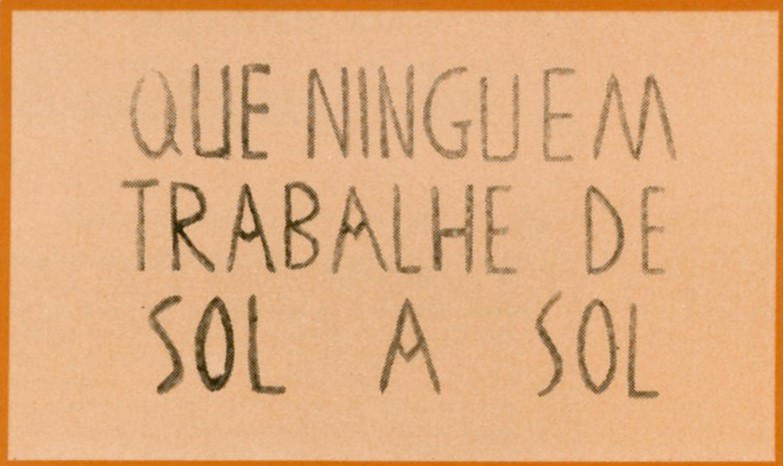 QUE NINGUEM
TRABALHE DE
SOL A SOL